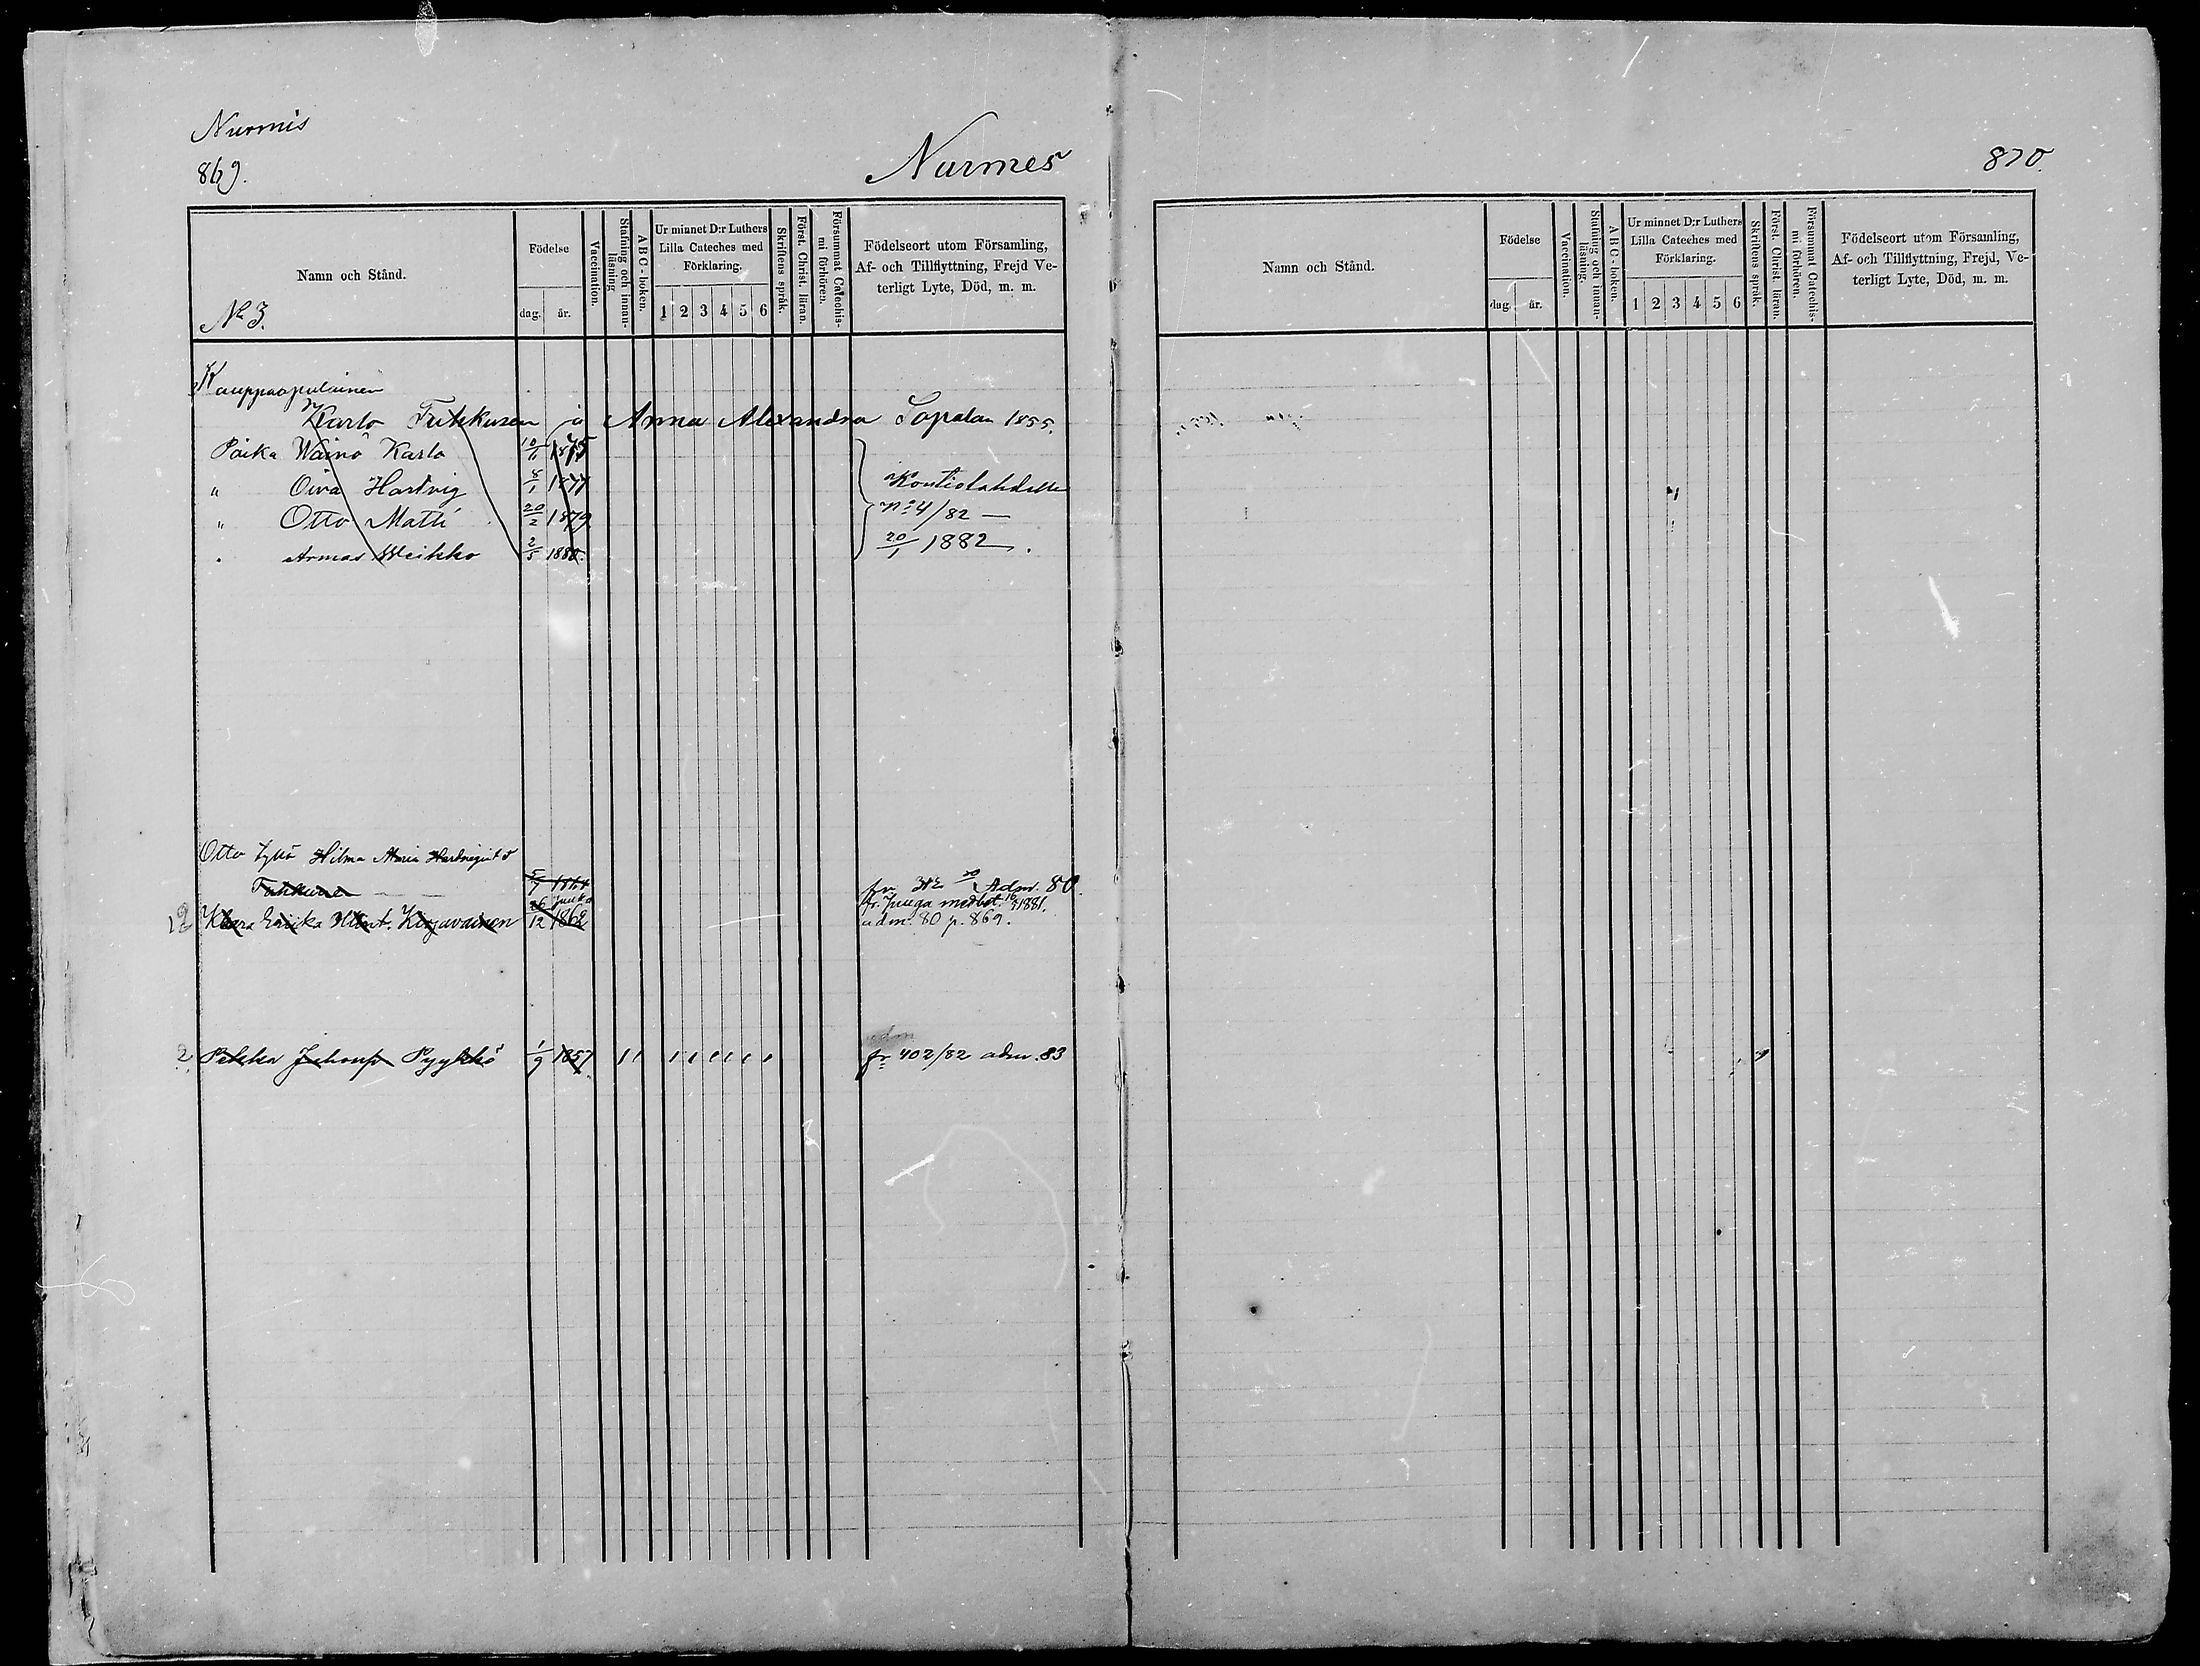 Nurmis
869.
Nurmes
Namn och Stånd.
Födelse
dag. år.
Vaccination.
Stafning och innanläsning
ABC-boken.
Ur minnet D:r Luthers
Lilla Cateches med
Förklaring.
1 2 3 4 5 6
Skriftens språk.
Först. Christ. läran.
Försummat Catechismi förhören.
Födelseort utom Församling,
Af- och Tillflyttning, Frejd Ve-
terligt Lyte, Död, m. m.
No 3.
Kauppaapulainen
Karlo Tuhkusen ja Anna Alexandra Sopalan 1855.
Poika Wäinö Karlo 10/11 1875
" Oiva Hartvig 8/1 1877
" Otto Matti 20/2 1879
" Armas Weikko 2/5 1880.
Kontiolahdelle
No 4/82 —
20/1 1882.
Otto Hilma Maria
5/7
fr. Adm. 80.
Juuka
12 Klara Erika Kirjavainen 26/12 1862
fr. Juuga med bet. 1881.
adm. 80 p. 869.
adm
2. Pekka Juhonp Pyykkö 1/9 1857
fr 402/82 adm. 83
870.
Namn och Stånd.
Födelse
dag. år.
Vaccination.
Stafning och innanläsning.
ABC-boken.
Ur minnet D:r Luthers
Lilla Cateches med
Förklaring.
1 2 3 4 5 6
Skriftens språk.
Först. Christ. läran.
Försummat Catechismi förhören.
Födelseort utom Församling,
Af- och Tillflyttning, Frejd, Ve-
terligt Lyte, Död, m. m.